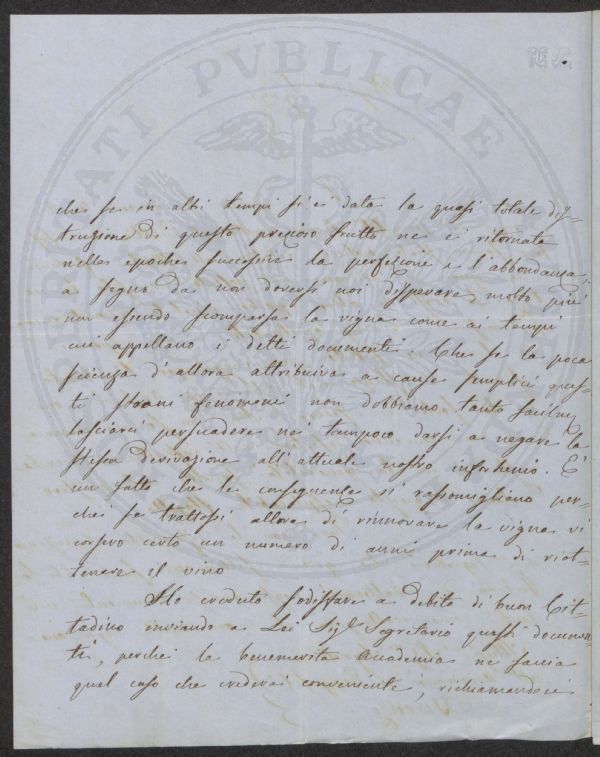 PVBLICAE
che se in altri tempi si è data la quasi totale dis-
truzione di questo prezioso frutto ne è ritornata
nelle epoche successive la perfezione e l'abbondanza,
a segno da non doversi noi disperare, molto più
non essendo scomparsa la vigna come ai tempi
cui appellano i detti documenti. Che se la poca
scienza d'allora attribuiva a cause semplici ques-
ti strani fenomeni non dobbiamo tanto facilm.
lasciarci persuadere nè tampoco darsi a negare la
stessa derivazione all'attuale nostro infortunio. È
un fatto che le conseguenze si rassomigliano per-
chè se trattossi allora di rinnovare la vigna vi
corsero certo un numero di anni prima di riot-
tenere il vino
Ho creduto sodisfare a debito di buon Cit-
tadino inviando a Lei Sig.r Segretario questi documen-
ti, perchè la benemerita Accademia ne faccia
quel caso che crederà conveniente, richiamandoci